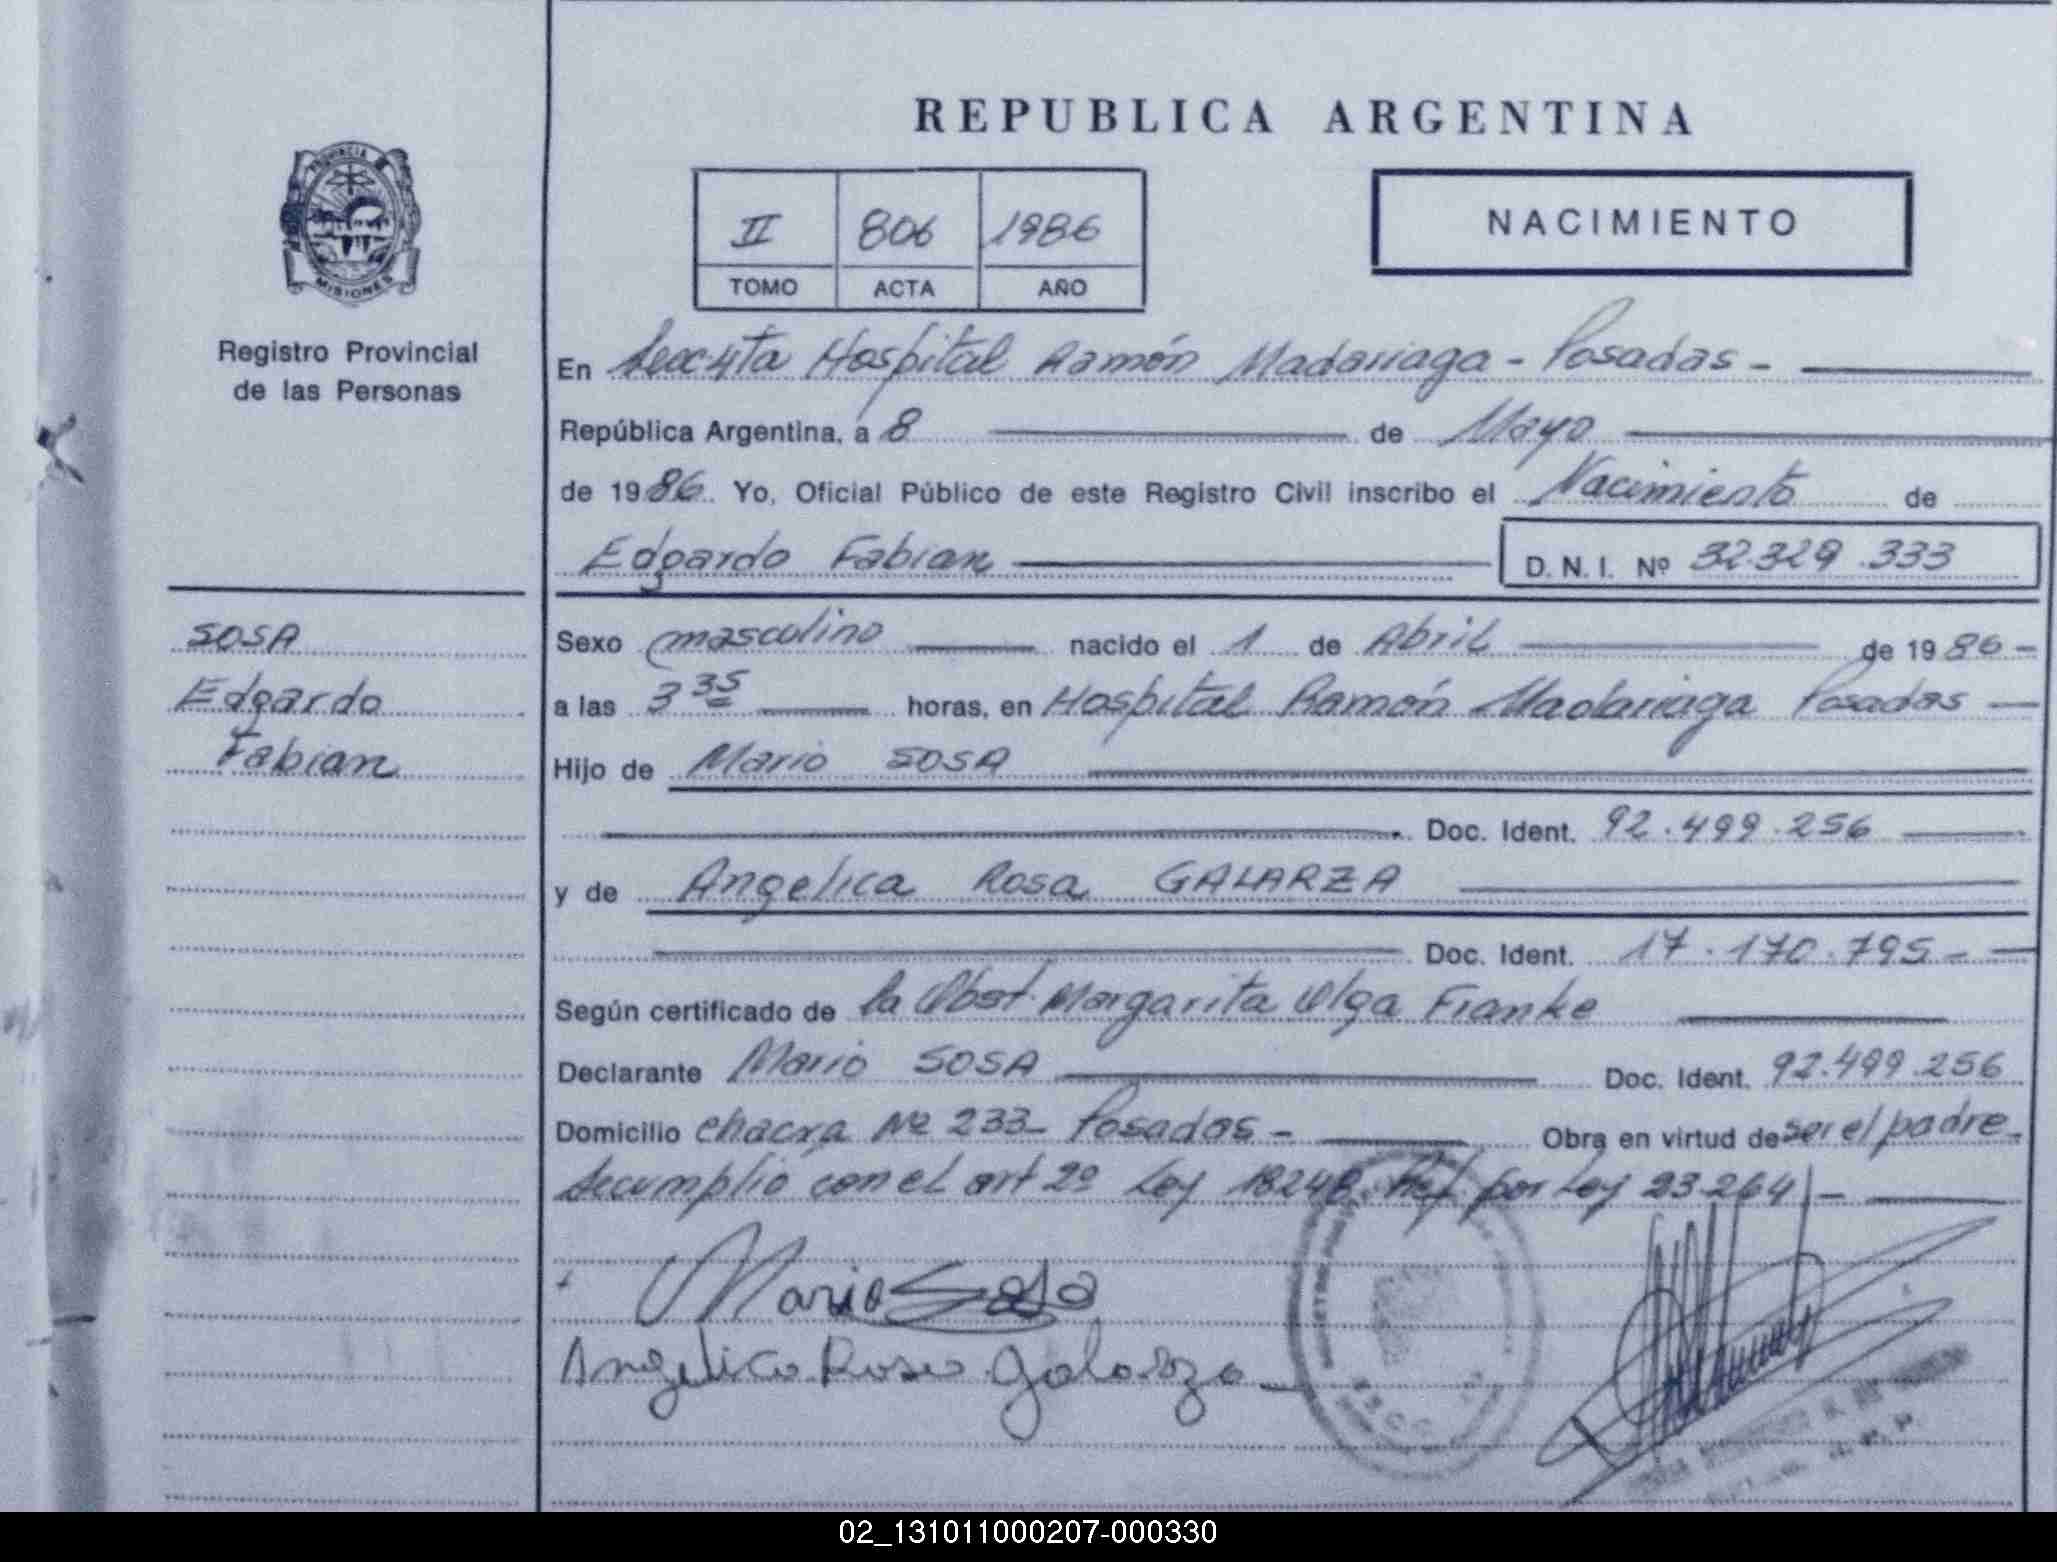 REPUBLICA ARGENTINA
PROVINCIA
MISIONES
Registro Provincial
de las Personas
II 806 1986
TOMO ACTA AÑO
NACIMIENTO
En Secc 4ta Hospital Ramón Madariaga - Posadas -
República Argentina, a 8 de Mayo
de 1986. Yo, Oficial Público de este Registro Civil inscribo el Nacimiento de
Edgardo Fabian D. N. I. Nº 32.329.333
SOSA
Edgardo
Fabian
Sexo masculino nacido el 1 de Abril de 1986 -
a las 3 35 horas, en Hospital Ramón Madariaga Posadas
Hijo de Mario SOSA
Doc. Ident. 92.499.256
y de Angelica Rosa GALARZA
Doc. Ident. 17.170.795 -
Según certificado de la Obst. Margarita Olga Franke
Declarante Mario SOSA Doc. Ident. 92.499.256
Domicilio chacra Nº 233 - Posadas - Obra en virtud de ser el padre -
Se cumplió con el art 2º Ley 18248 Ref. por Ley 23264 -
Mario Sosa
Angelica Rosa Galarza
02_131011000207-000330